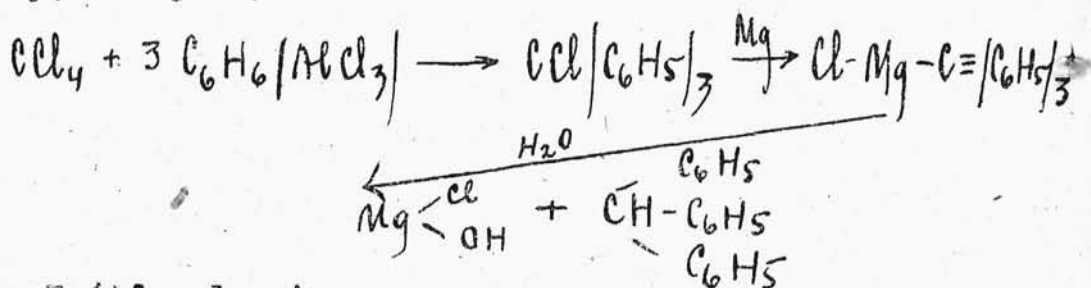 CCl₄ + 3 C₆H₆/AlCl₃/ ⟶ CCl/C₆H₅/₃ Mg⟶ Cl-Mg-C≡/C₆H₅/₃
H₂O
Mg Cl OH + CH C₆H₅ -C₆H₅ C₆H₅